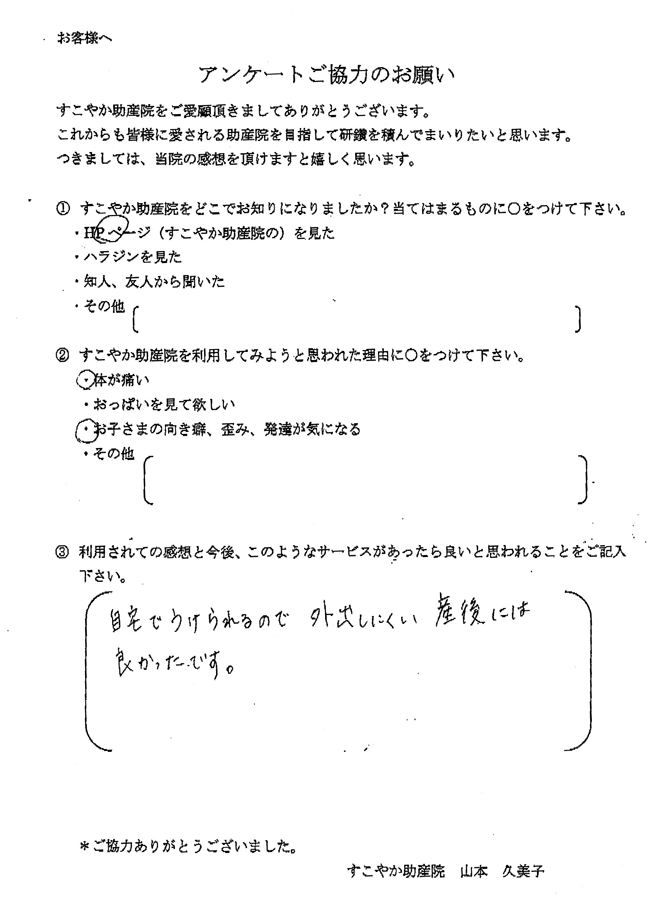 お客様へ
アンケートご協力のお願い
すこやか助産院をご愛顧頂きましてありがとうございます。
これからも皆様に愛される助産院を目指して研鑽を積んでまいりたいと思います。
つきましては、当院の感想を頂けますと嬉しく思います。
① すこやか助産院をどこでお知りになりましたか？当てはまるものに○をつけて下さい。
・HPページ（すこやか助産院の）を見た
・ハラジンを見た
・知人、友人から聞いた
・その他
② すこやか助産院を利用してみようと思われた理由に○をつけて下さい。
・体が痛い
・おっぱいを見て欲しい
・お子さまの向き癖、歪み、発達が気になる
・その他
③ 利用されての感想と今後、このようなサービスがあったら良いと思われることをご記入
下さい。
自宅でうけられるので 外出しにくい 産後には
良かったです。
＊ご協力ありがとうございました。
すこやか助産院 山本 久美子